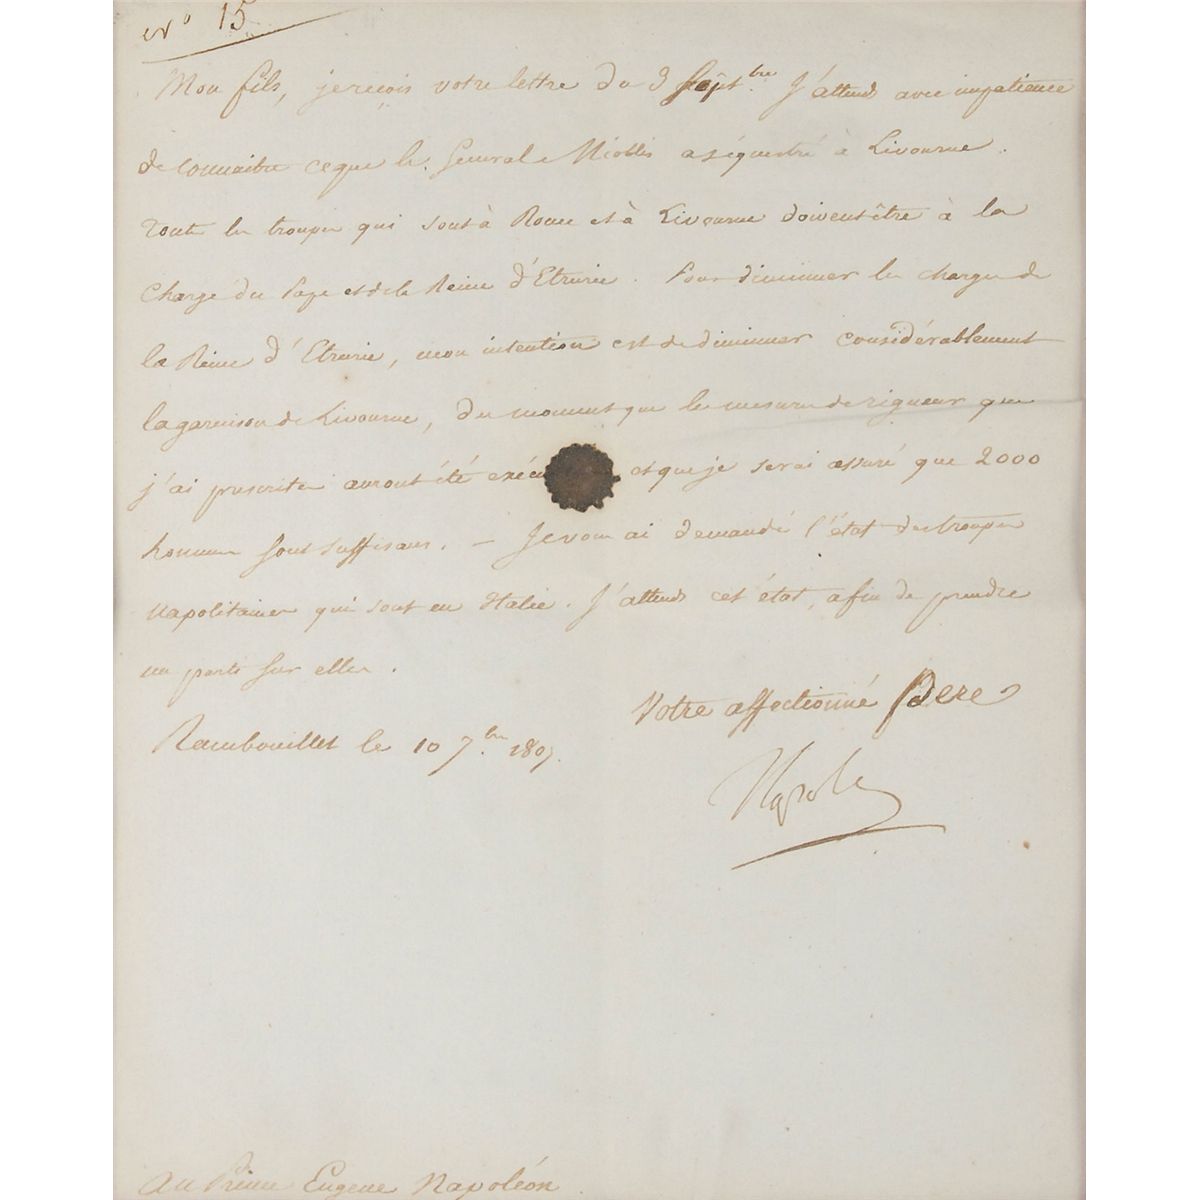 nº 15
Mon fils, je reçois votre lettre du 3 Sept.bre J'attends avec impatience
de connaitre ce que le Général Miollis a séquestré à Livourne.
Toutes les troupes qui sont à Rome et à Livourne doivent être à la
charge du Pape et de la Reine d'Etrurie. Pour diminuer les charges de
la Reine d'Etrurie, mon intention est de diminuer considérablement
la garnison de Livourne, du moment que les mesures de rigueur que
j'ai prescrites auront été exécu et que je serai assuré que 2000
hommes sont suffisans. — Je vous ai demandé l'état des troupes
napolitaines qui sont en Italie. J'attends cet état, afin de prendre
un parti sur elles.
Votre affectionné Pere
Rambouillet le 10 7.bre 1807.
Napole
Au Prince Eugene Napoléon